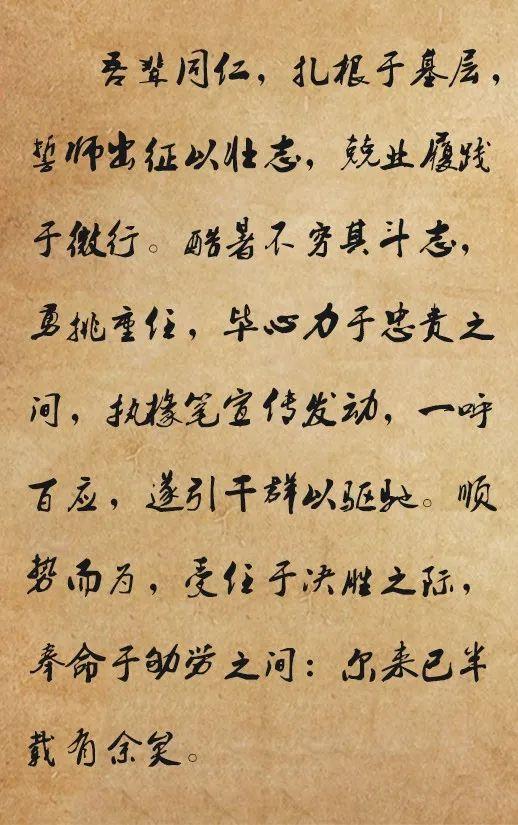 吾辈同仁，扎根于基层，
誓师出征以壮志，兢业履践
于微行。酷暑不穷其斗志，
勇挑重任，毕心力于忠责之
间，执椽笔宣传发动，一呼
百应，遂引干群以驱驰。顺
势而为，受任于决胜之际，
奉命于劬劳之间：尔来已半
载有余矣。